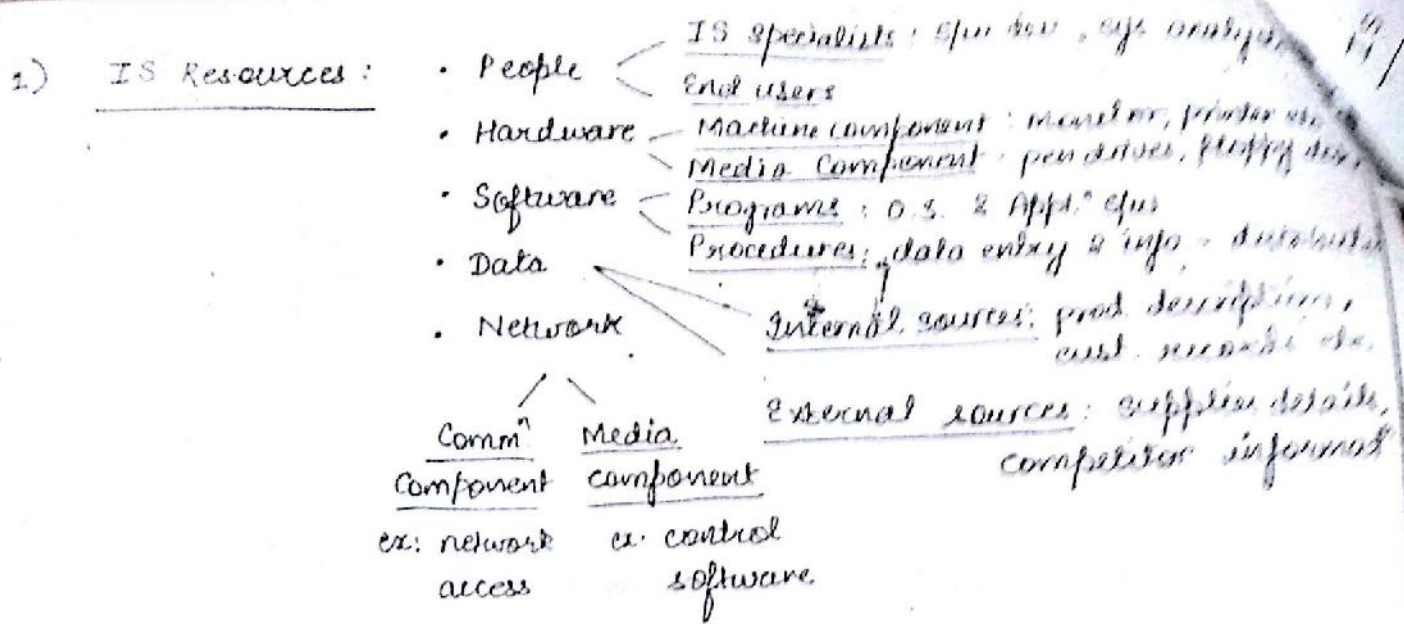 1) IS Resources :
• People
IS specialists : s/w dev , sys analysts
End users
• Hardware
Machine component : monitor, printer etc
Media Component : pen drives, floppy disc,
• Software
Programs : O.S. & Appl.ⁿ s/w
Procedures : data entry & info -
• Data
Internal sources : prod description,
cust. records etc.
External sources : supplier details,
competitor informatⁿ
• Network
Commⁿ Component
ex: network
access
Media component
ex. control
software